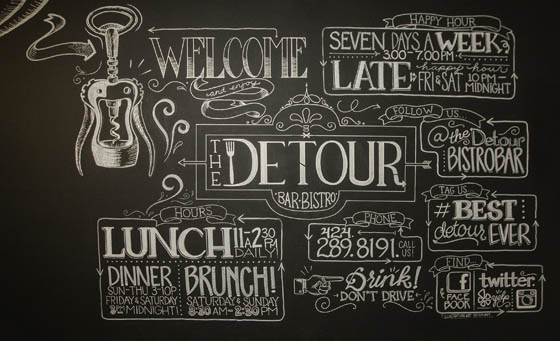 WELCOME
and enjoy
THE DETOUR
BAR·BISTRO
HAPPY HOUR
SEVEN DAYS A WEEK
3:00 - 7:00 PM
LATE happy hour
FRI & SAT 10 PM - MIDNIGHT
FOLLOW US...
@the Detour
BISTROBAR
TAG US
#BEST
detour EVER
FIND
f FACEBOOK
twitter
yelp
HOURS
LUNCH 11-2:30 PM
DAILY!
DINNER
SUN-THU 3-10P
FRIDAY & SATURDAY
MIDNIGHT!
BRUNCH!
SATURDAY & SUNDAY
8:30 AM - 2:30 PM
PHONE
424.
289.8191. CALL US!
Drink!
DON'T DRIVE